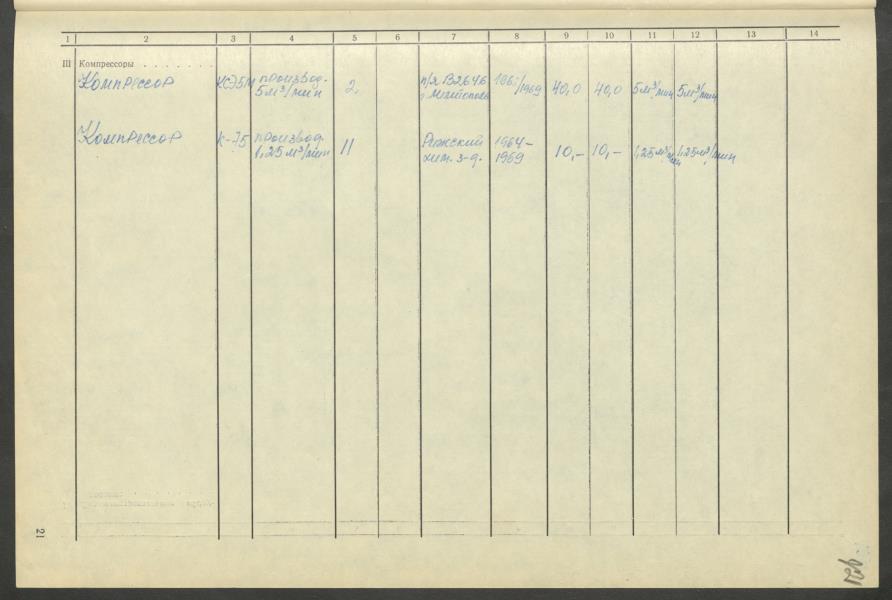 1 2 3 4 5 6 7 8 9 10 11 12 13 14
III Компрессоры . . . . . . .
Компрессор КСЭ5М производ. 2 п/я В2646 1969 40,0 40,0 5м³/мин 5м³/мин
5м³/мин г. Мелитополь
Компрессор К-75 производ. 11 Рижский 1964- 10,- 10,- 1,25м³/мин 1,25м³/мин
1,25 м³/мин хим. з-д. 1969
21